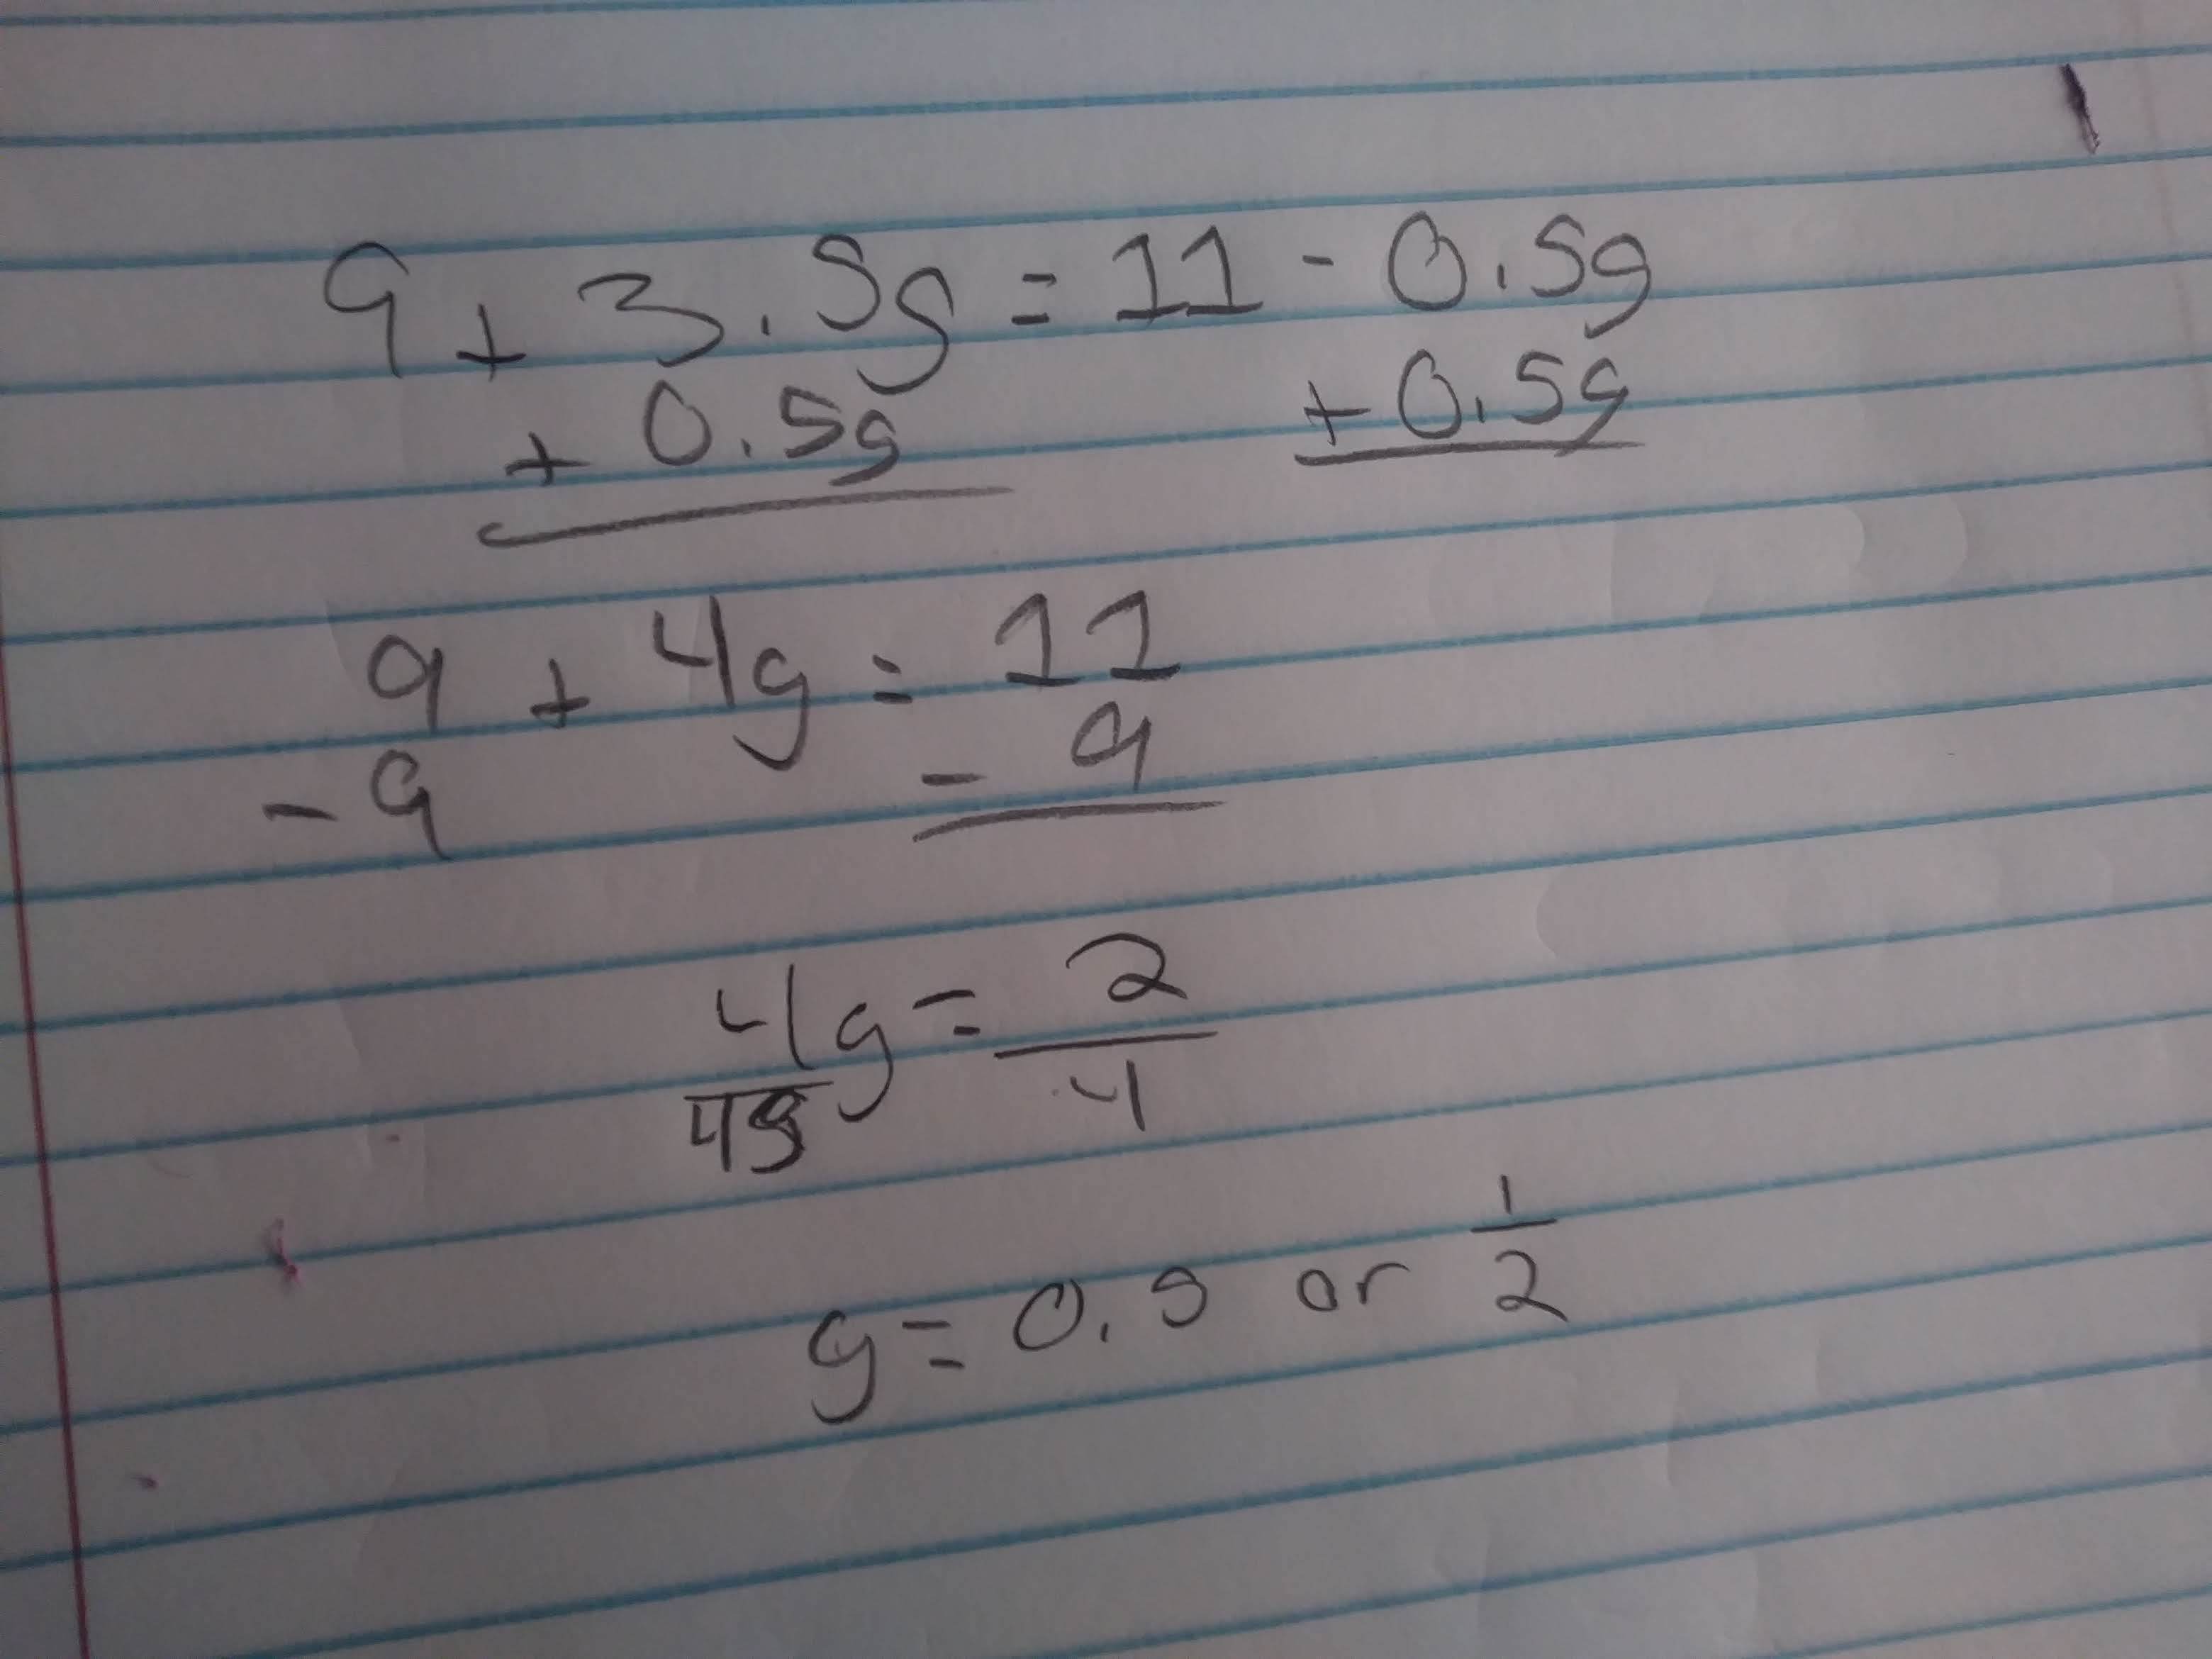 9 + 3.5g = 11 - 0.5g
+ 0.5g + 0.5g
9 + 4g = 11
- 9 - 9
4g = 2
4 4
g = 0.5 or 1/2